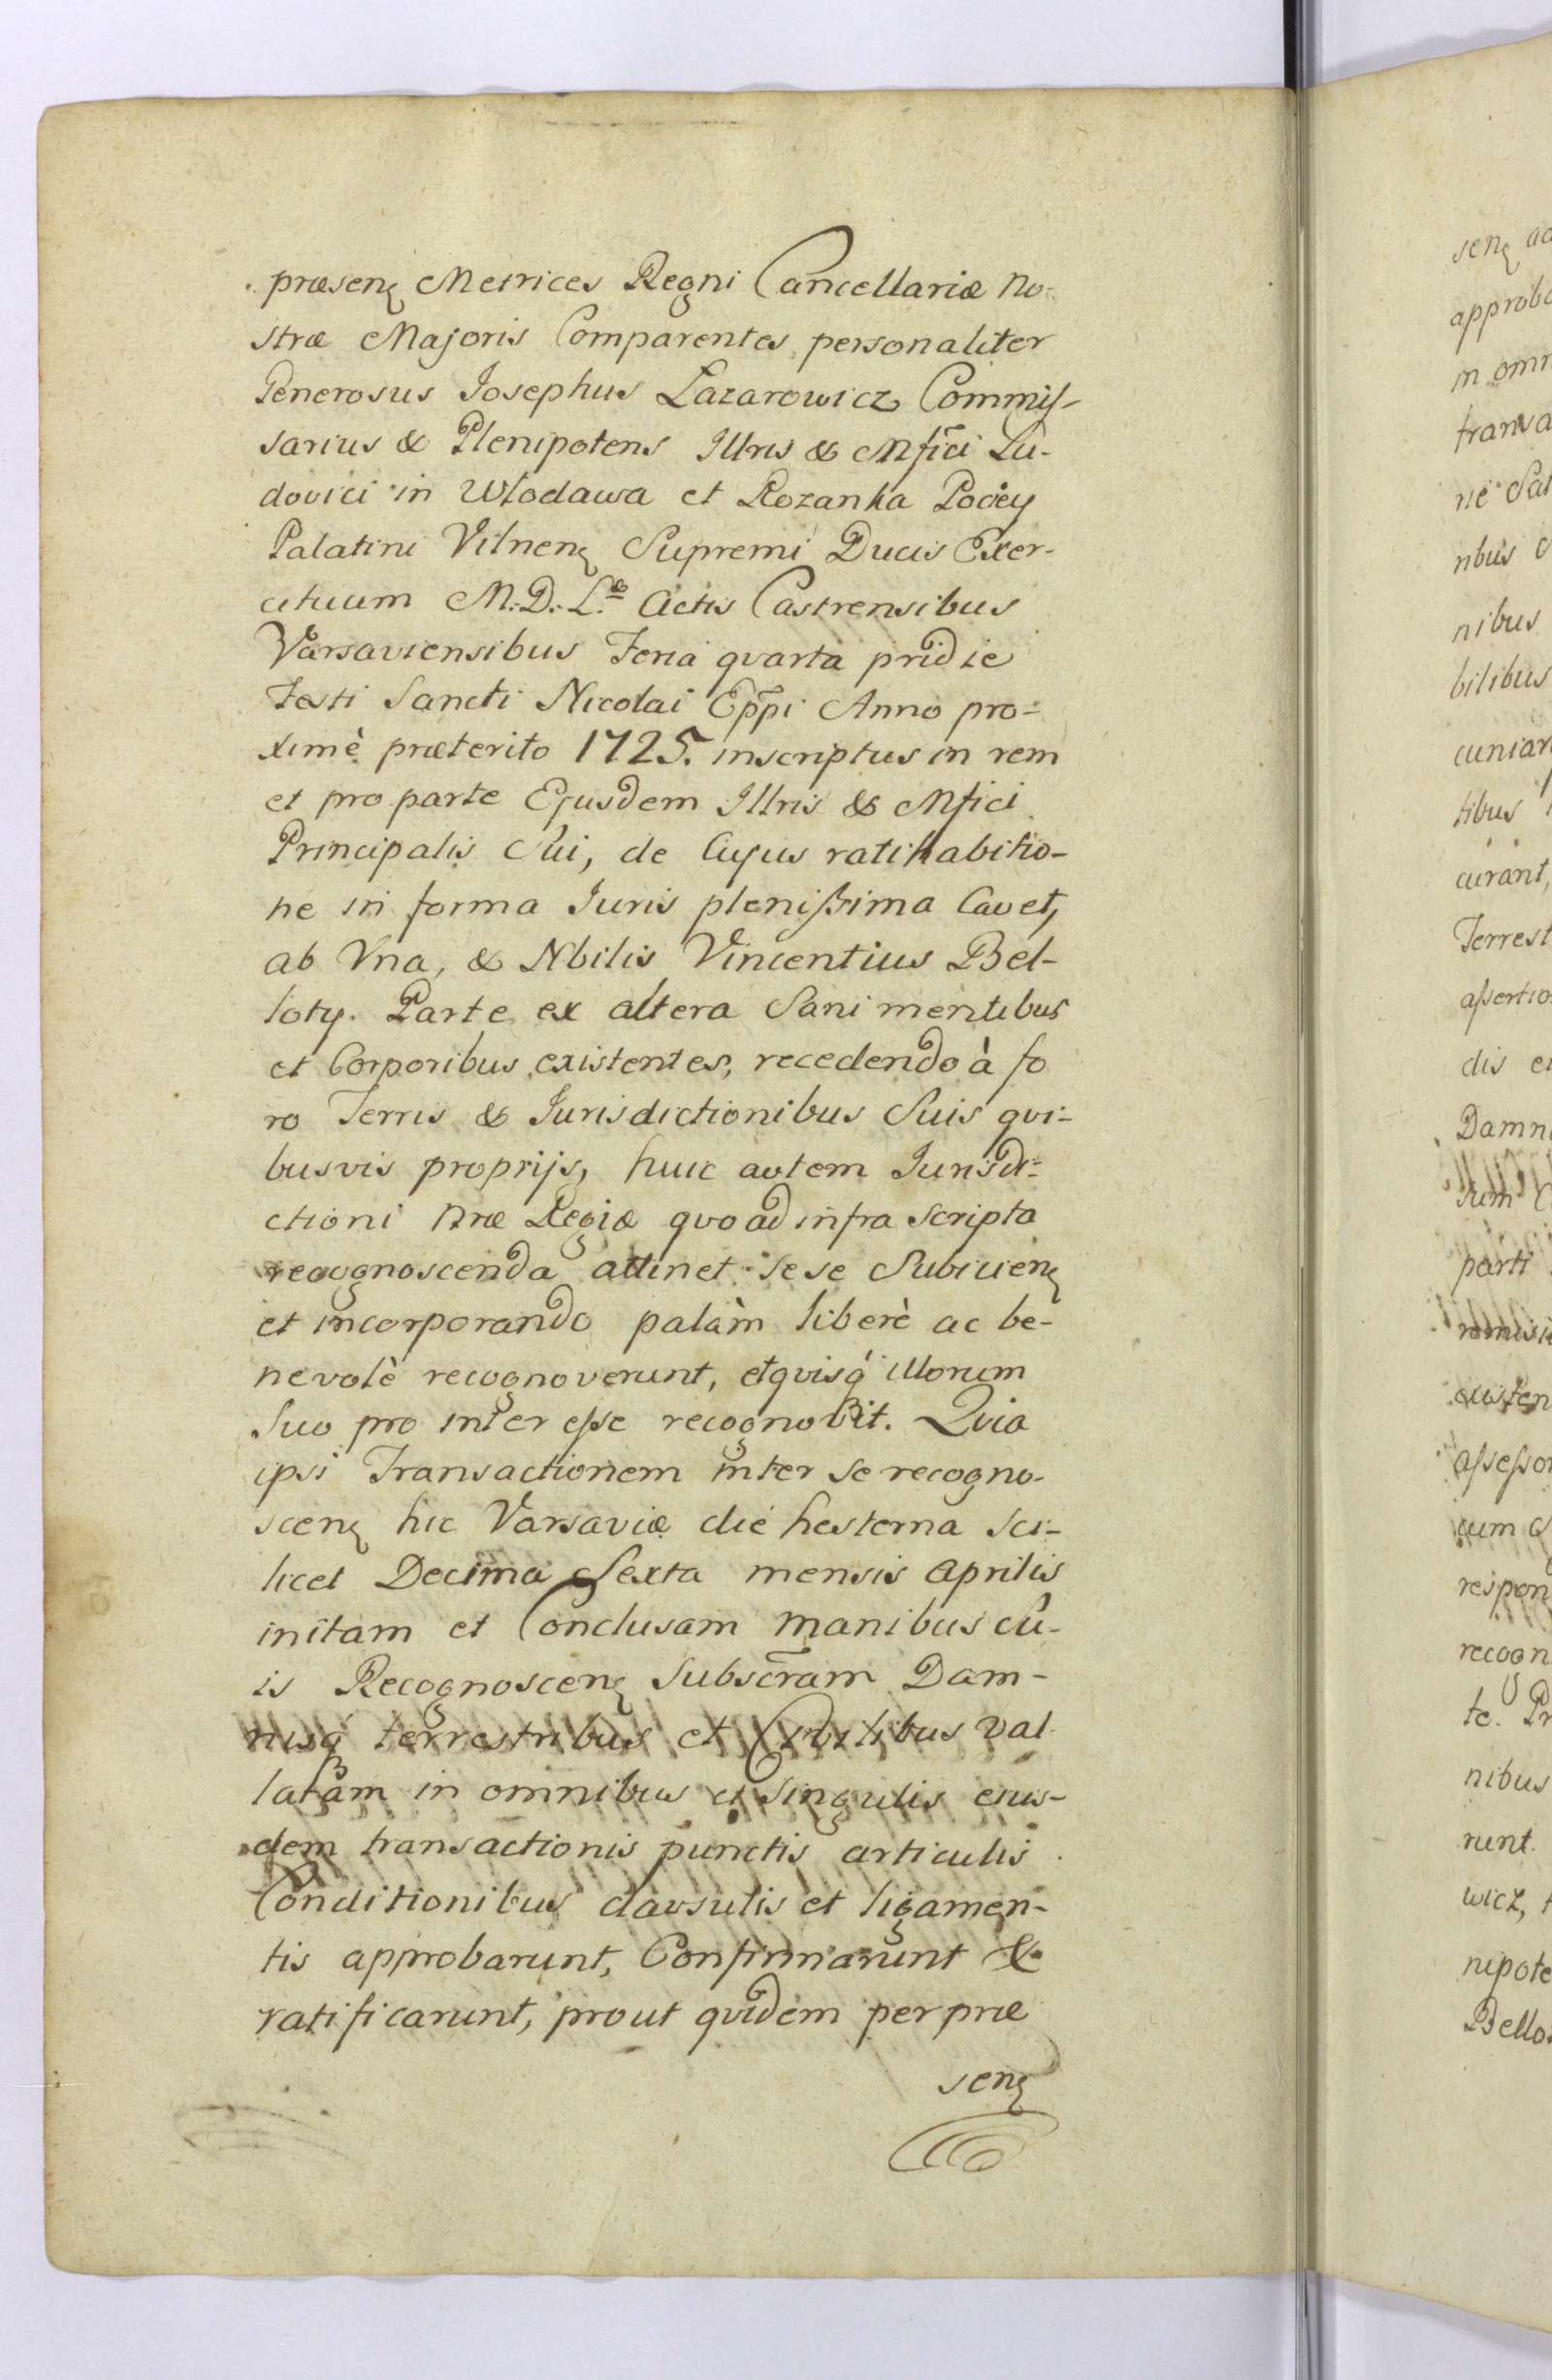 præsenꝫ Metrices Regni Cancellariæ no-
stræ Majoris Comparentes personaliter
Generosus Josephus Lazarowicz Commis-
sarius & Plenipotens Illris & Mfici Lu-
dovici in Wlodawa et Rozanka Pociey
Palatini Vilnenꝫ Supremi Ducis Exer-
cituum M: D: L.æ Actis Castrensibus
Varsaviensibus Feria qvarta pridie
Festi Sancti Nicolai Eppi Anno pro-
ximè præterito 1725. inscriptus in rem
et pro parte Ejusdem Illris & Mfici
Principalis Sui, de Cujus ratihabitio-
ne in forma Juris plenissima Cavet,
ab Vna, & Nbilis Vincentius Bel-
loty. Parte ex altera Sani mentibus
et Corporibus existentes, recedendo à fo
ro Terris & Jurisdictionibus Suis qvi-
busvis proprijs, huic autem Jurisdi-
ctioni Nræ Regiæ qvo ad infra Scripta
recognoscenda attinet sese Subiicienꝫ
et incorporando palàm liberè ac be-
nevolè recognoverunt, et qvisq́ illorum
Suo pro interesse recognovit. Qvia
ipsi Transactionem inter Se recogno-
scenꝫ hic Varsaviæ die hesterna Sci-
licet Decima Sexta mensis Aprilis
initam et Conclusam manibus Su-
is Recognoscenꝫ Subscram Dam-
nisq́ terrestribus et Civilibus val
latam in omnibus et Singulis eius-
dem transactionis punctis articulis
Conditionibus clausulis et ligamen-
tis approbarunt, Confirmarunt &
ratificarunt, prout qvidem per præ
senꝫ
senꝫ
approb
in omn
transa
ne
nibus
bilibus
cuniar
tibus
curant,
Terrest
assertio
dis
Damn
parti
existen
assesso
cum
respon
recogn
te.
nibus
runt.
wicz,
nipote
Bello